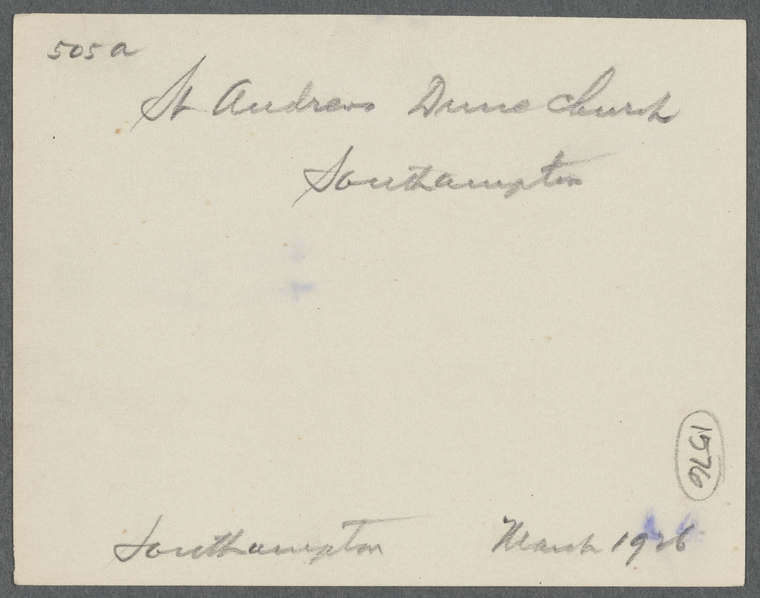 505a
St Andrews Dune Church
Southampton
1576
Southampton March 1926